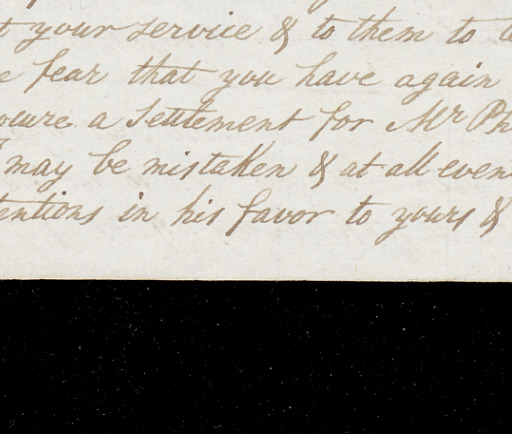 t your service & to them to
e fear that you have again
ocure a Settlement for Mr Ph
I may be mistaken & at all even
tentions in his favor to yours &